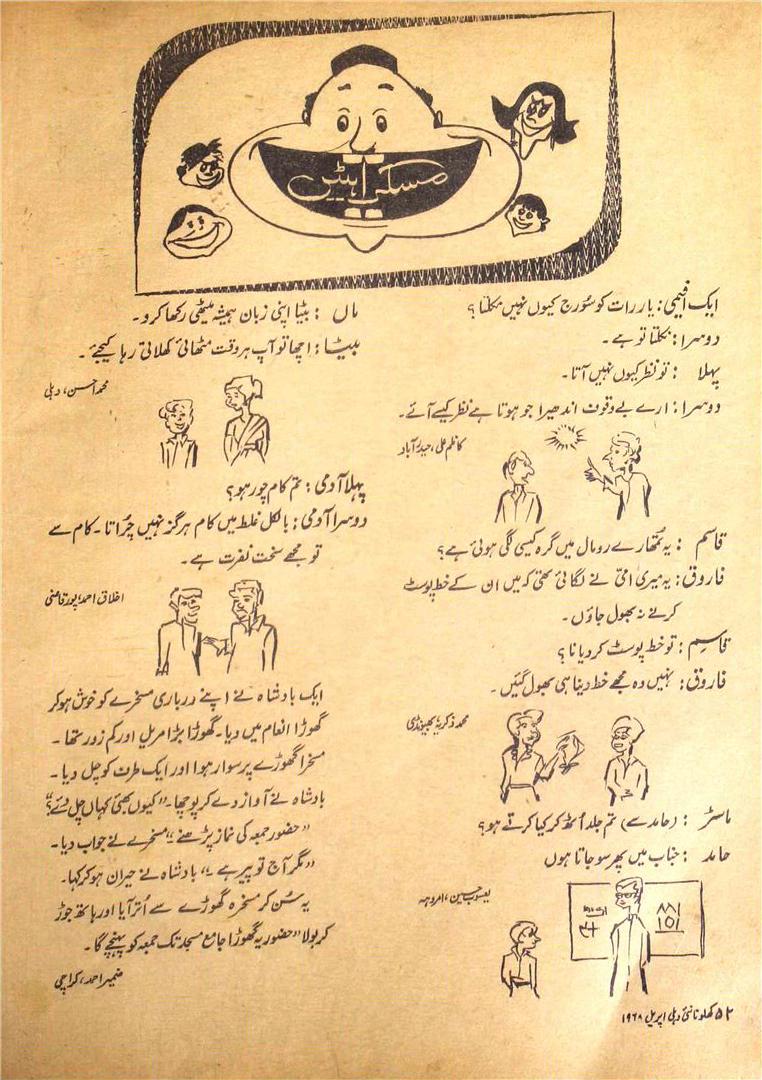 مسکراہٹیں
ایک افیمی: یار رات کو سُورج کیوں نہیں نکلتا؟
دوسرا: نکلتا تو ہے۔
پہلا : تو نظر کیوں نہیں آتا۔
دوسرا: ارے بے وقوف اندھیرا جو ہوتا ہے نظر کیسے آئے۔
کاظم علی، حیدرآباد
قاسم : یہ تُمھارے رومال میں گرہ کیسی لگی ہوئی ہے؟
فاروق: یہ میری امّی نے لگائی تھی کہ میں ان کے خط پوسٹ
کرنے نہ بھول جاؤں۔
قاسم : تو خط پوسٹ کر دیا نا؟
فاروق: نہیں وہ مجھے خط دینا ہی بھول گئیں۔
محمد ذکریا، بھیونڈی
ماسٹر : (حامد سے) تم جلد اُٹھ کر کیا کرتے ہو؟
حامد : جناب میں پھر سو جاتا ہوں
یعسوب حسین، امروہہ
ماں : بیٹا اپنی زبان ہمیشہ میٹھی رکھا کرو۔
بیٹا : اچھا تو آپ ہر وقت مٹھائی کھلاتی رہا کیجئے۔
محمد احسن، دہلی
پہلا آدمی: تم کام چور ہو؟
دوسرا آدمی: بالکل غلط میں کام ہرگز نہیں چُراتا۔ کام سے
تو مجھے سخت نفرت ہے۔
اخلاق احمد، پورقاضی
ایک بادشاہ نے اپنے درباری مسخرے کو خوش ہو کر
گھوڑا انعام میں دیا۔ گھوڑا بڑا مریل اور کم زور تھا۔
مسخرا گھوڑے پر سوار ہوا اور ایک طرف کو چل دیا۔
بادشاہ نے آواز دے کر پوچھا۔ "کیوں بھئی کہاں چل دئے؟"
"حضور جمعہ کی نماز پڑھنے"۔ مسخرے نے جواب دیا۔
"مگر آج تو پیر ہے"۔ بادشاہ نے حیران ہو کر کہا۔
یہ سُن کر مسخرہ گھوڑے سے اُتر آیا اور ہاتھ جوڑ
کر بولا "حضور یہ گھوڑا جامع مسجد تک جمعہ کو پہنچے گا۔
ضمیر احمد، کراچی
۵۲ کھلونا نئی دہلی اپریل ۱۹۶۸